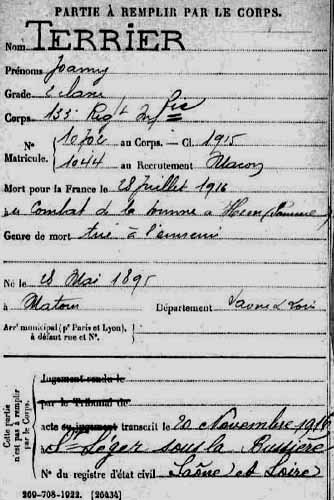 PARTIE À REMPLIR PAR LE CORPS.
Nom TERRIER
Prénoms Joanny
Grade 2e classe
Corps 133e Regt Infie
N° Matricule. 10702 au Corps. — Cl. 1915
1044 au Recrutement Macon
Mort pour la France le 28 Juillet 1916
au Combat de la Somme à Hem (Somme)
Genre de mort tué à l'ennemi
Né le 28 Mai 1895
à Matour Département Saône & Loire
Arrt municipal (pr Paris et Lyon),
à défaut rue et N°.
Cette partie n'est pas à remplir par le Corps.
Jugement rendu le
par le Tribunal de
acte ou jugement transcrit le 20 Novembre 1916
à St Léger sous la Bussière
N° du registre d'état civil Saône et Loire
269-708-1922. [26434]